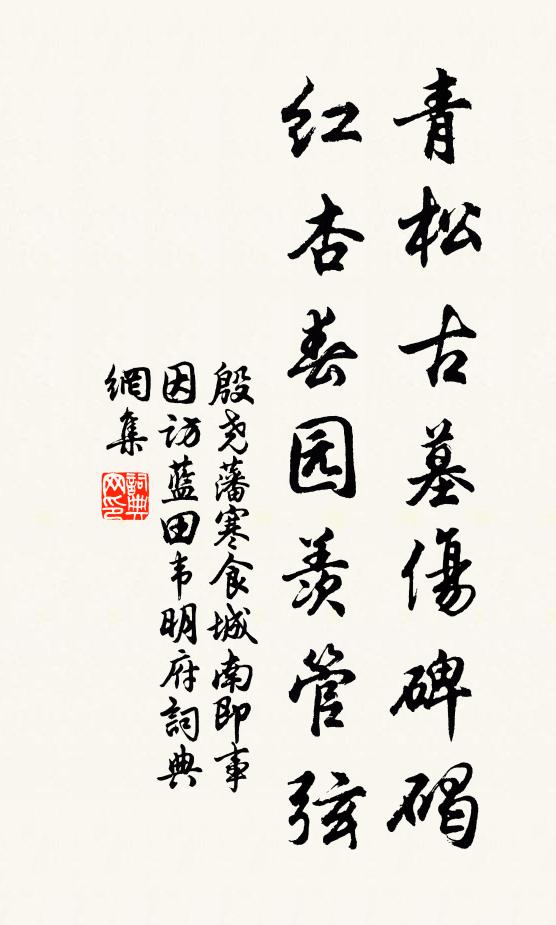 青松古墓傷碑碣
红杏春园羨管弦
殷尧藩寒食城南即事
因访蓝田韦明府詞典
網集
詞典网印